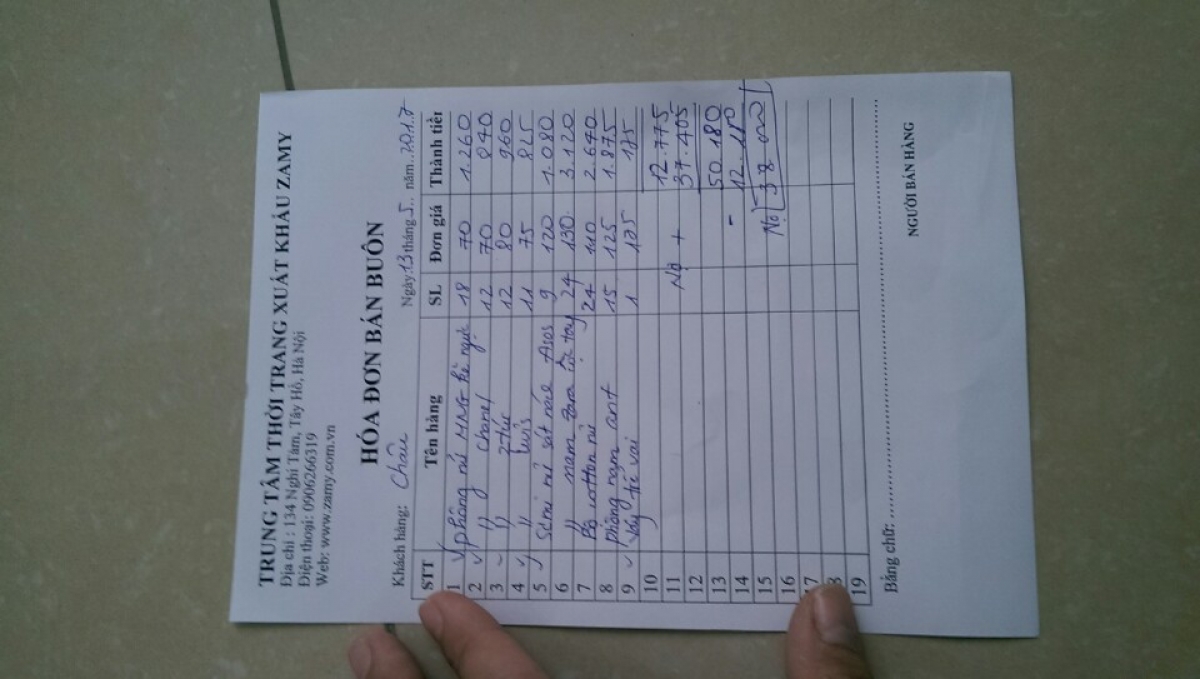 TRUNG TÂM THỜI TRANG XUẤT KHẨU ZAMY
Địa chỉ : 134 Nghi Tàm, Tây Hồ, Hà Nội
Điện thoại: 0906266319
Web: www.zamy.com.vn
HÓA ĐƠN BÁN BUÔN
Khách hàng: Châu Ngày 13 tháng 5 năm 2017
STT Tên hàng SL Đơn giá Thành tiền
1 phông nữ MNG kẻ ngực 18 70 1.260
2 " chanel 12 70 840
3 " 2 túi 12 80 960
4 " levis 11 75 825
5 Sơmi nữ sát nách Asos 9 120 1.080
6 " nam zara cộc tay 24 130 3.120
7 Bộ cotton nữ 24 110 2.640
8 Phông nam ant 15 125 1.875
9 váy trễ vai 1 175 175
10 12.775
11 Nợ + 37.405
12
13 50.180
14 -
15 Nợ 38.000
16
17
18
19
Bằng chữ:
NGƯỜI BÁN HÀNG